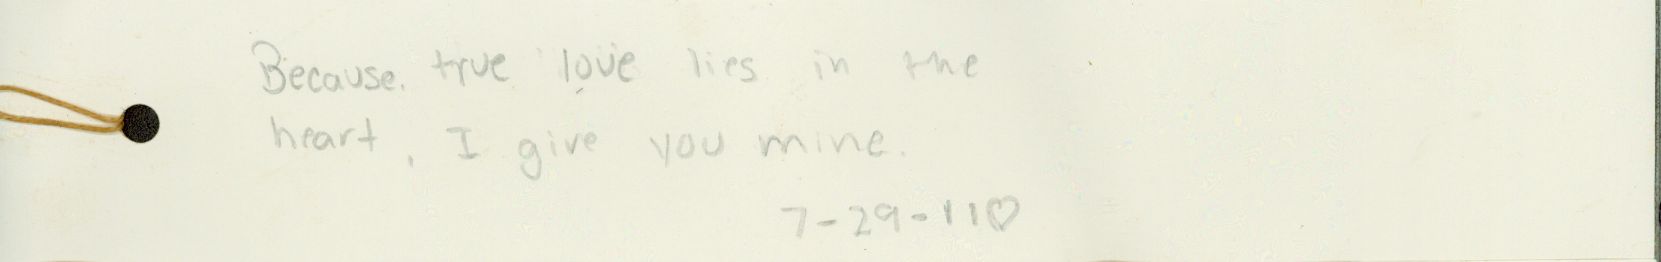 Because. true love lies in the
heart, I give you mine.
7-29-11♡